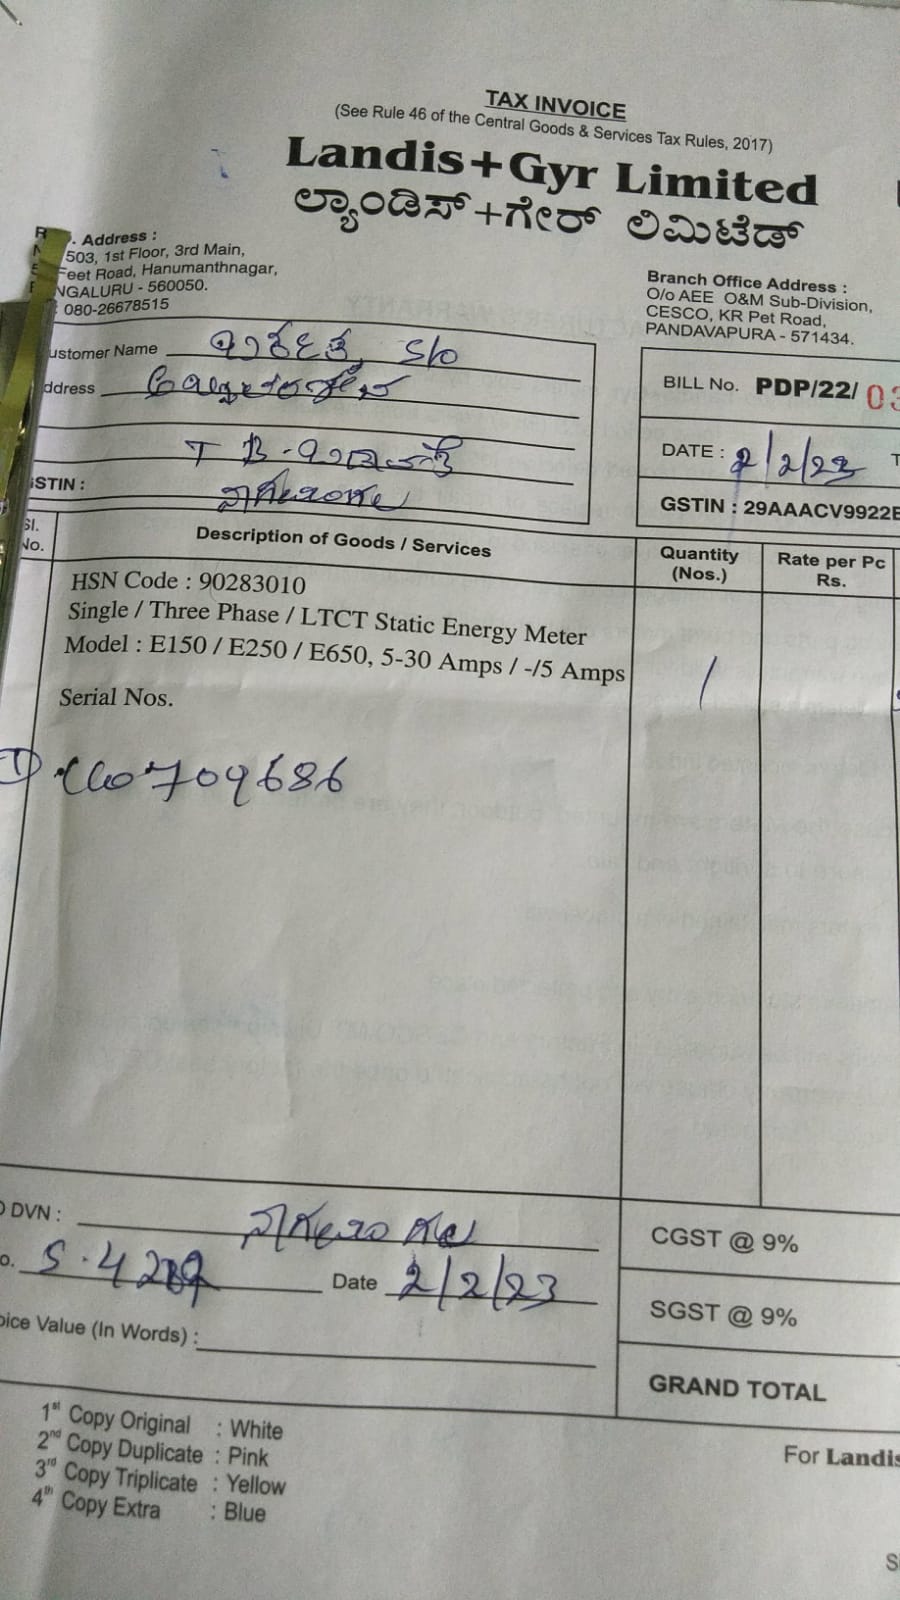 TAX INVOICE
(See Rule 46 of the Central Goods & Services Tax Rules, 2017)
Landis+Gyr Limited
ಲ್ಯಾಂಡಿಸ್+ಗೇರ್ ಲಿಮಿಟೆಡ್
Address :
503, 1st Floor, 3rd Main,
Feet Road, Hanumanthnagar,
NGALURU - 560050.
080-26678515
Branch Office Address :
O/o AEE O&M Sub-Division,
CESCO, KR Pet Road,
PANDAVAPURA - 571434.
ustomer Name S/o
ddress
T B.
STIN :
BILL No. PDP/22/ 03
DATE : 2/2/23
GSTIN : 29AAACV9922E
Sl. No.
Description of Goods / Services
Quantity (Nos.)
Rate per Pc Rs.
HSN Code : 90283010
Single / Three Phase / LTCT Static Energy Meter
Model : E150 / E250 / E650, 5-30 Amps / -/5 Amps
1
Serial Nos.
① 709686
DVN :
o. Date 2/2/23
oice Value (In Words) :
CGST @ 9%
SGST @ 9%
GRAND TOTAL
1st Copy Original : White
2nd Copy Duplicate : Pink
3rd Copy Triplicate : Yellow
4th Copy Extra : Blue
For Landis